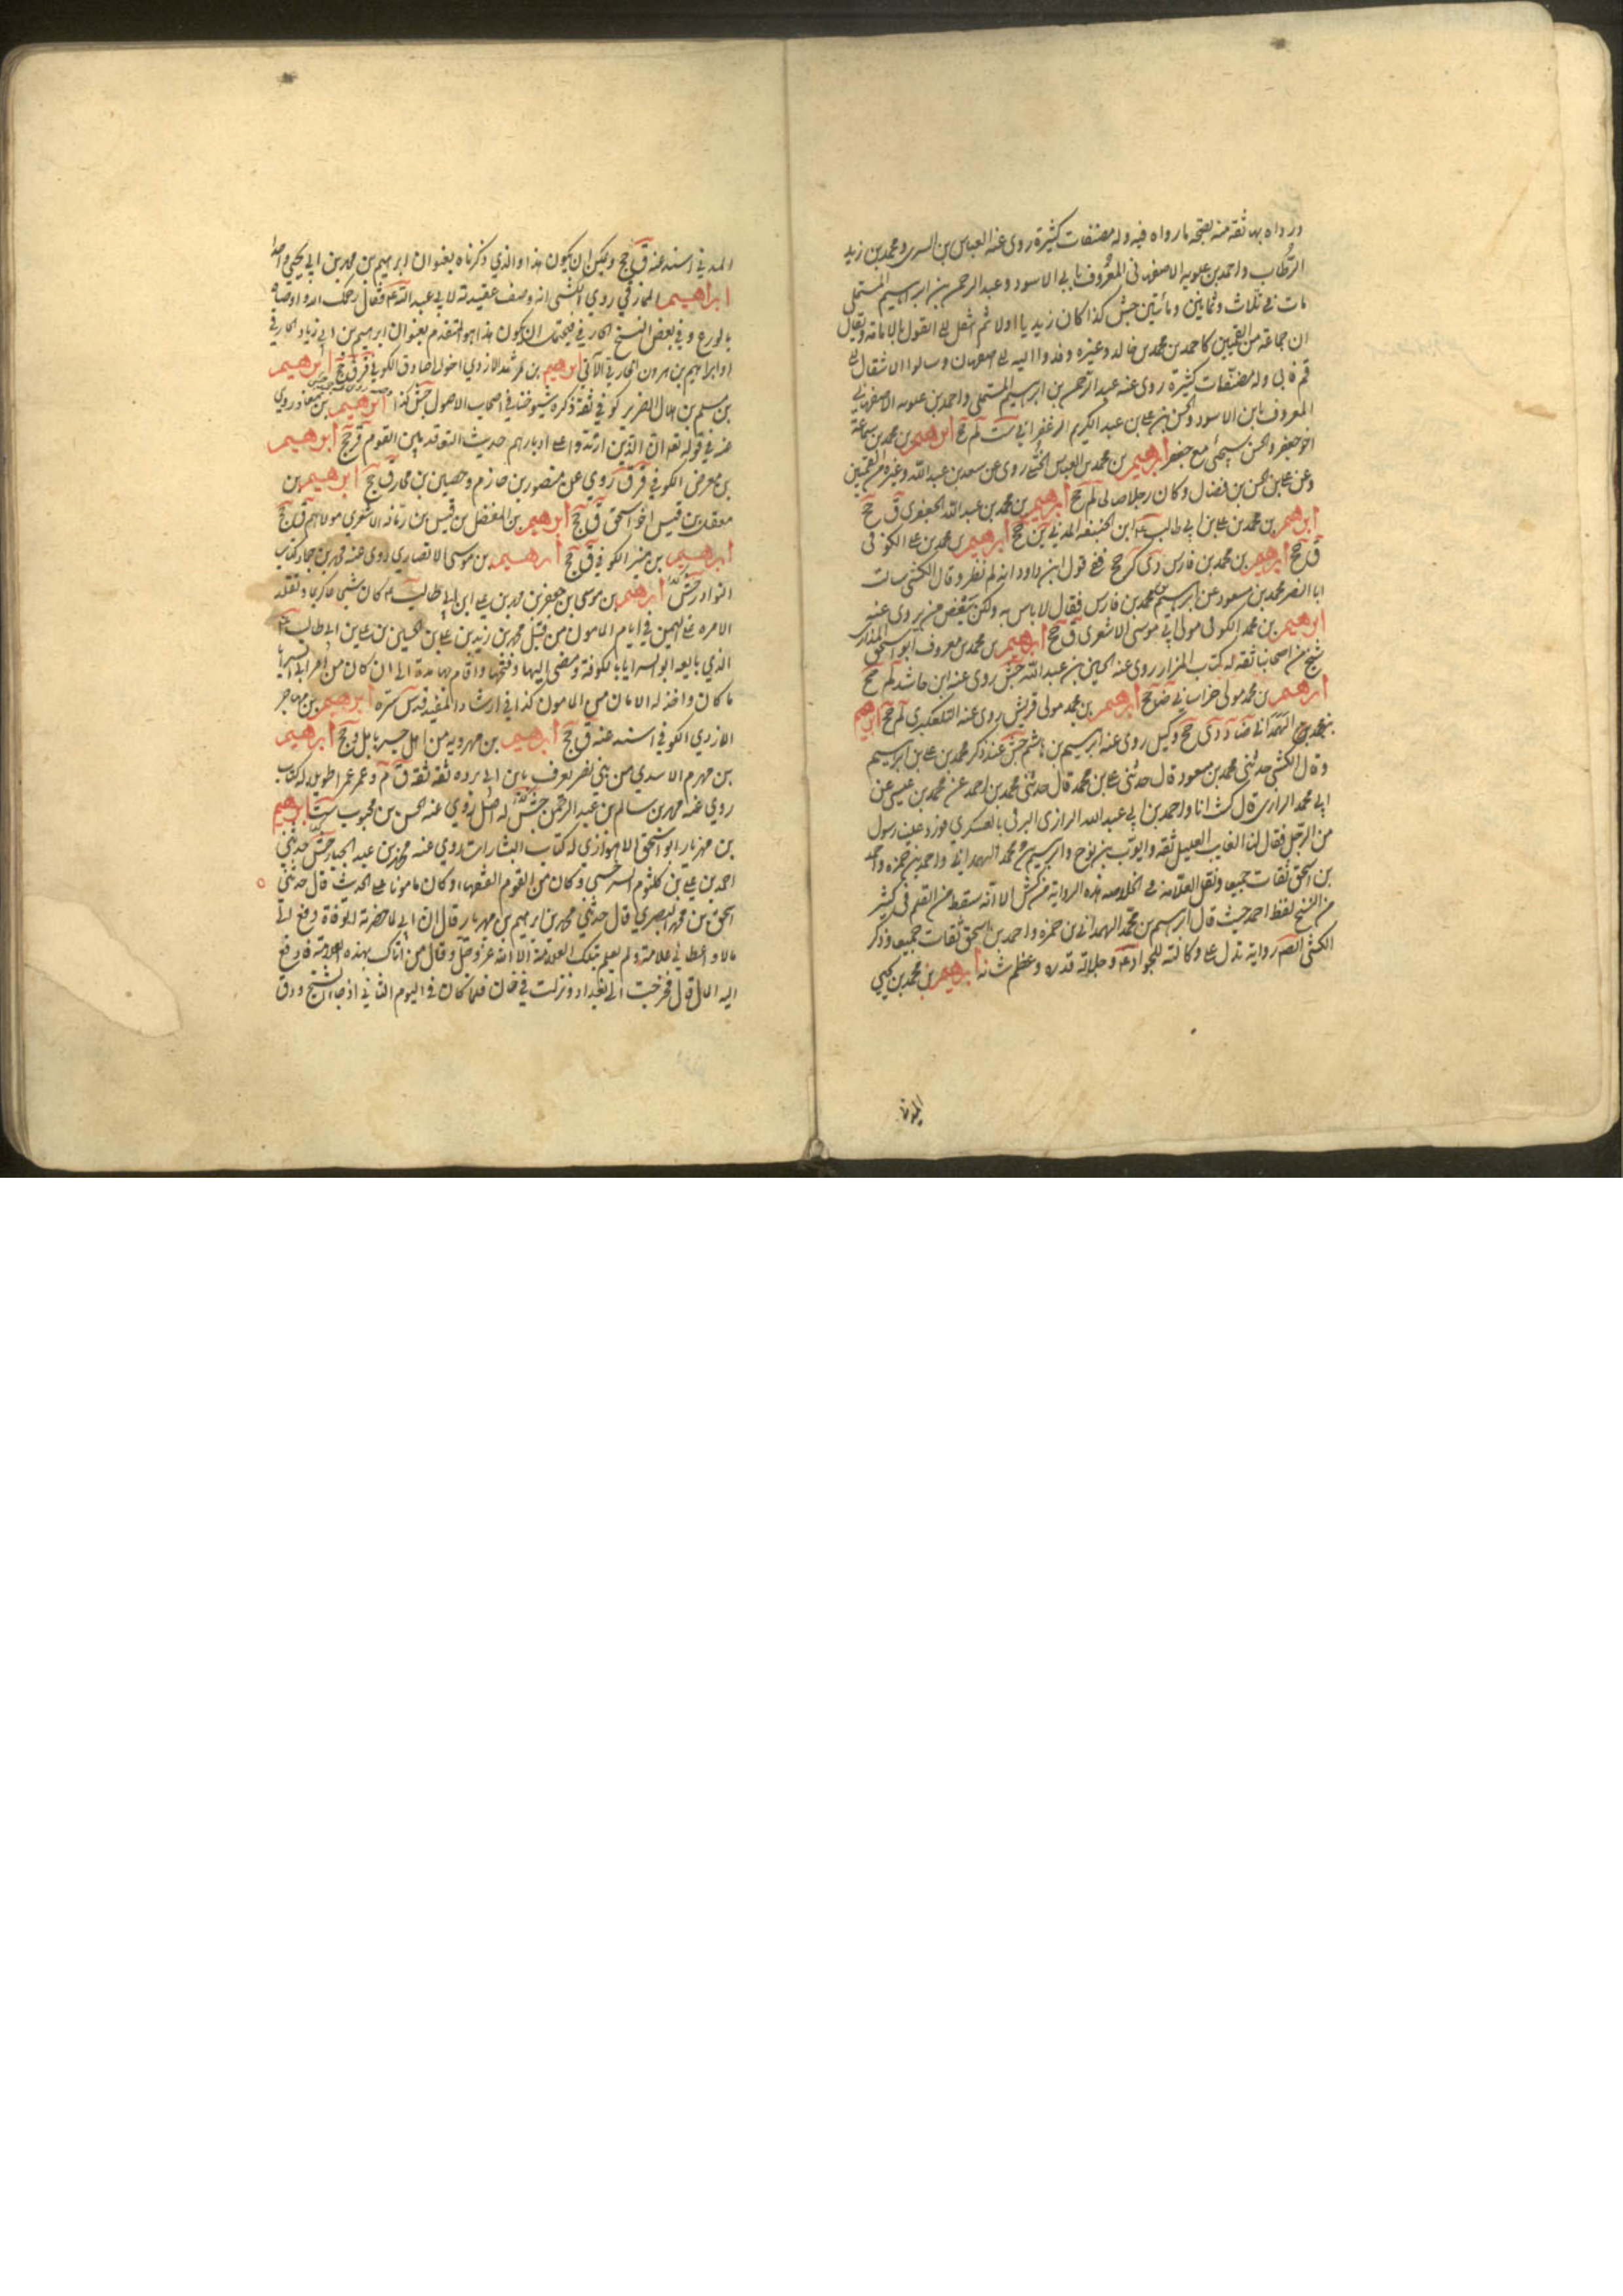 ورواه بها ثقة منه بصحة ما رواه فيه وله مصنفات كثيرة روى عنه العباس بن السري ومحمد بن زيد
الرطاب واحمد بن علويه الاصفهاني المعروف بابي الاسود وعبد الرحمن بن ابرهيم المستملي
مات في ثلاث وثمانين ومائتين جش كذا كان زيديا اولا ثم انتقل الى القول بالامامة ويقال
ان جماعة من القميين كاحمد بن محمد بن خالد وغيره وفدوا اليه الى اصفهان وسالوا الانتقال الى
قم فابى وله مصنفات كثيرة روى عنه عبد الرحمن بن ابرهيم المستملي واحمد بن علويه الاصفهاني
المعروف بابن الاسود والحسن بن علي بن عبد الكريم الزعفراني ست لم جخ ابرهيم بن محمد بن سماعة
اخو جعفر والحسن سيجئ مع جعفر ابرهيم بن محمد بن العباس الختلي روى عن سعد بن عبد الله وغيره من القميين
وعن علي بن الحسن بن فضال وكان رجلا صالحا لم جخ ابرهيم بن محمد بن عبد الله الجعفري ق جخ
ابرهيم بن محمد بن علي بن ابي طالب ع ابن الحنفية المدني ين جخ ابرهيم بن محمد بن علي الكوفي
ق جخ ابرهيم بن محمد بن فارس دي كر جخ ففي قول ابن داود انه لم نظر وقال الكشي سالت
ابا النضر محمد بن مسعود عن ابرهيم بن محمد بن فارس فقال لا باس به ولكن ببعض من يروي عنه
ابرهيم بن محمد الكوفي مولى ابي موسى الاشعري ق جخ ابرهيم بن محمد بن معروف ابو اسحق المذاري
شيخ من اصحابنا ثقة له كتب المزار روى عنه الحسين بن عبد الله جش روى عنه ابن حاشد لم جخ
ابرهيم بن محمد مولى خراساني ضا جخ ابرهيم بن محمد مولى قريش روى عنه التلعكبري لم جخ ابرهيم
بن محمد الهمداني ضا د دي جخ وكيل روى عنه ابرهيم بن هاشم جش عند ذكر محمد بن علي بن ابرهيم
وقال الكشي حدثني محمد بن مسعود قال حدثني علي بن محمد قال حدثني محمد بن احمد عن محمد بن عيسى عن
ابي محمد الرازي قال كنت انا واحمد بن ابي عبد الله الرازي البرقي بالعسكر فورد علينا رسول
من الرجل فقال لنا الغايب العليل ثقة وايوب بن نوح وابرهيم بن محمد الهمداني واحمد بن حمزة واحمد
بن اسحق ثقات جميعا ونقل العلامة في الخلاصة هذه الرواية من كش الا انه سقط من القلم في كثير
من النسخ لفظ احمد حيث قال ابرهيم بن محمد الهمداني بن حمزة واحمد بن اسحق ثقات جميعا وذكر
الكشي رواية تدل على وكالته للجواد ع وجلالة قدره وعظم شانه ابرهيم بن محمد بن يحيى
المدني اسند عنه ق جخ ويمكن ان يكون هذا والذي ذكرناه بعنوان ابرهيم بن محمد بن ابي يحيى واحدا
ابراهيم المخارقي روى الكشي انه وصف عقيدته لابي عبد الله ع فقال رحمك الله واوصاه
بالورع وفي بعض النسخ الخارفي فيحتمل ان يكون هذا هو المتقدم بعنوان ابرهيم بن ابي زياد الخارفي
او ابراهيم بن هرون الخارفي الآتي ابرهيم بن مرثد الازدي اخو ابي صادق الكوفي قر ق جخ ابرهيم
بن مسلم بن هلال الضرير كوفي ثقة ذكره شيوخنا في اصحاب الاصول جش كذا ابرهيم بن معاذ روى
عنه في قوله تع ان الذين ارتدوا على ادبارهم حديث التعاقد بين القوم قر جخ ابرهيم
بن معرض الكوفي قر ق روى عن منصور بن حازم وحصين بن مخارق جخ ابرهيم بن
معقل بن قيس اخو اسحق ق جخ ابرهيم بن المفضل بن قيس بن رمانة الاشعري مولاهم ق جخ
ابرهيم بن منير الكوفي ق جخ ابرهيم بن موسى الانصاري روى عنه محمد بن حماد كتاب
النوادر جش ابرهيم بن موسى بن جعفر بن محمد بن علي بن ابي طالب ع كان شيخا كريما وتقلد
الامرة على اليمن في ايام المامون من قبل محمد بن زيد بن علي بن الحسين بن علي بن ابي طالب ع
الذي بايعه ابو السرايا بالكوفة ومضى اليها وفتحها واقام بها مدة الى ان كان من امر ابي السرايا
ما كان واخذ له الامان من المامون كذا في ارشاد المفيد قدس سره ابرهيم بن مهاجر
الازدي الكوفي اسند عنه ق جخ ابرهيم بن مهرويه من اهل جسر بابل د جخ ابرهيم
بن مهزم الاسدي من بني نصر يعرف بابن ابي برده ثقة ثقة ق م وعمر عمرا طويلا له كتاب
روى عنه محمد بن سالم بن عبد الرحمن جش له اصل روى عنه الحسن بن محبوب ست ابرهيم
بن مهزيار ابو اسحق الاهوازي له كتاب البشارات روى عنه محمد بن عبد الجبار جش حدثني
احمد بن علي بن كلثوم السرخسي وكان من القوم الفقهاء وكان مامونا على الحديث قال حدثني
اسحق بن محمد البصري قال حدثني محمد بن ابرهيم بن مهزيار قال ان ابي لما حضرته الوفاة دفع الي
مالا واعطاني علامة ولم يعلم بتلك العلامة الا الله عز وجل وقال من اتاك بهذه العلامة فادفع
اليه المال قال فخرجت الى بغداد ونزلت في خان فلما كان في اليوم الثاني اذ جاء شيخ ودق